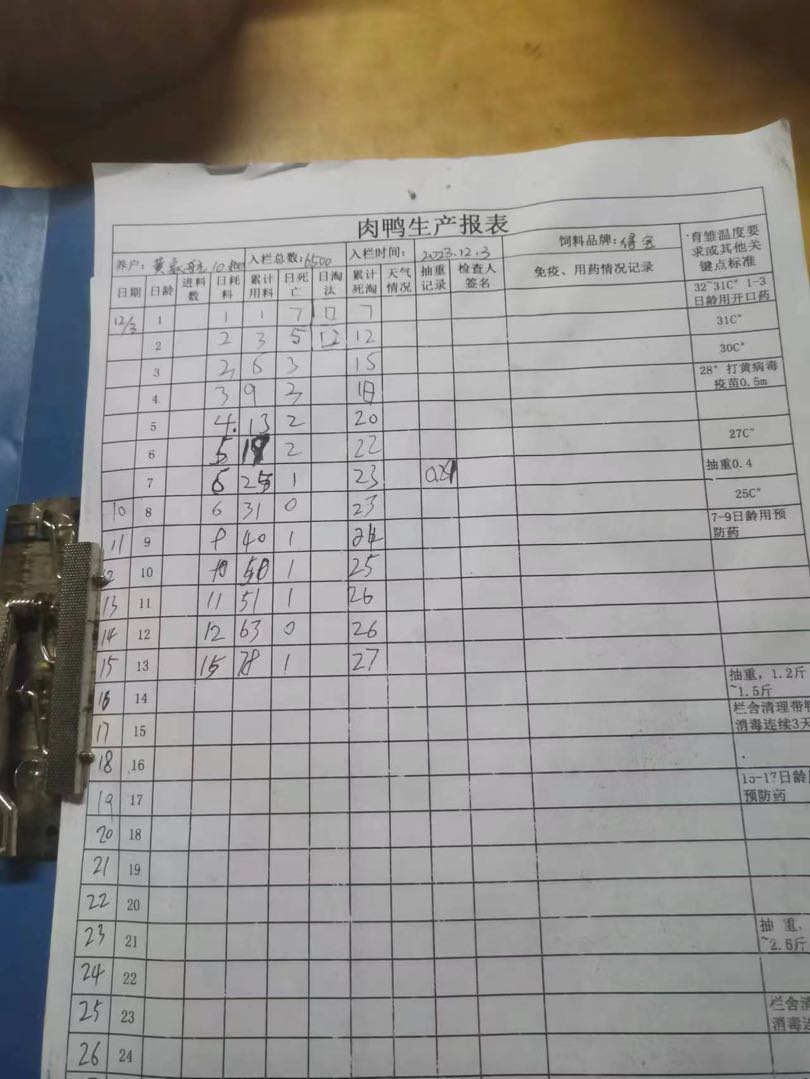 肉鸭生产报表
养户: 入栏总数:6500 入栏时间: 2023.12.3 饲料品牌: 育雏温度要求或其他关键点标准
日期 日龄 进料数 日耗料 累计用料 日死亡 日淘汰 累计死淘 天气情况 抽重记录 检查人签名 免疫、用药情况记录
32~31C° 1-3日龄用开口药
12/3 1 1 1 7 7
31C°
2 2 3 5 12 12
30C°
3 2 6 3 15
28° 打黄病毒疫苗0.5m
4 3 9 3 18
5 4 13 2 20
27C°
6 5 18 2 22
抽重0.4
7 6 25 1 23
25C°
10 8 6 31 0 23
7-9日龄用预防药
11 9 9 40 1 24
12 10 10 50 1 25
13 11 11 51 1 26
14 12 12 63 0 26
15 13 15 78 1 27
抽重，1.2斤~1.5斤
16 14
栏舍清理带鸭消毒连续3天
17 15
18 16
15-17日龄用预防药
19 17
20 18
21 19
22 20
抽 重，~2.6斤
23 21
24 22
栏舍清
消毒连
25 23
26 24